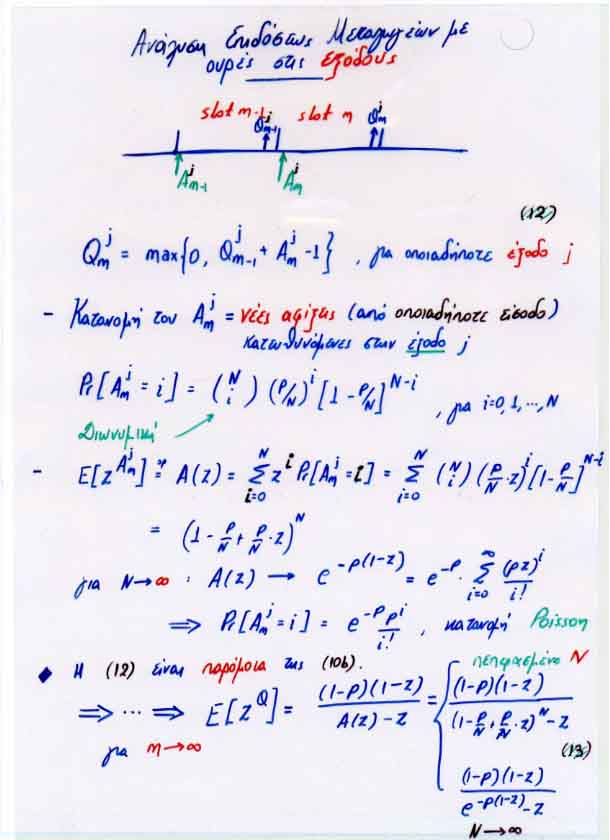 Ανάλυση Επιδόσεως Μεταγωγέων με
ουρές στις εξόδους
slot m-1 Q^j_{m-1} slot m Q^j_m
A^j_{m-1} A^j_m
(12)
Q^j_m = max{0, Q^j_{m-1} + A^j_m - 1}, για οποιαδήποτε έξοδο j
- Κατανομή του A^j_m = νέες αφίξεις (από οποιαδήποτε είσοδο)
κατευθυνόμενες στην έξοδο j
Pr[A^j_m = i] = (N i) (P/N)^i [1 - P/N]^{N-i}, για i=0, 1, ..., N
Διωνυμική
- E[z^{A^j_m}] ≜ A(z) = Σ_{i=0}^{N} z^i Pr[A^j_m = i] = Σ_{i=0}^{N} (N i) (P/N · z)^i [1 - P/N]^{N-i}
= (1 - P/N + P/N · z)^N
για N→∞ : A(z) → e^{-p(1-z)} = e^{-p} · Σ_{i=0}^{∞} (pz)^i / i!
⟹ Pr[A^j_m = i] = e^{-p} p^i / i! , κατανομή Poisson
♦ Η (12) είναι παρόμοια της (10b). πεπερασμένο N
⟹ ... ⟹ E[z^Q] = (1-p)(1-z) / A(z) - z = { (1-p)(1-z) / (1 - P/N + P/N · z)^N - z
για m→∞ (13)
(1-p)(1-z) / e^{-p(1-z)} - z
N→∞